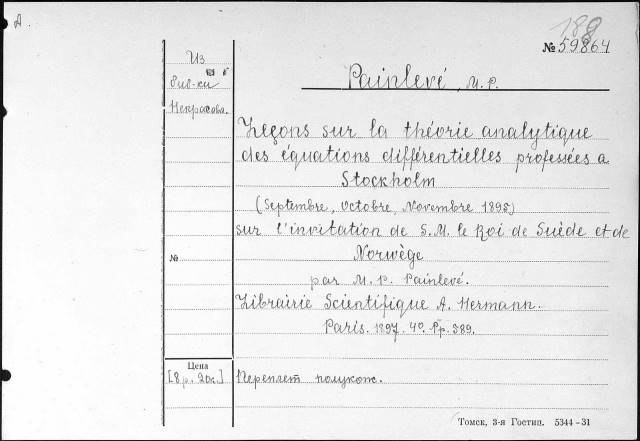 А.
188
№ 59864
Из
биб-ки
Некрасова.
Painlevé, M. P.
Leçons sur la théorie analytique
des équations différentielles professées a
Stockholm
(Septembre, Octobre, Novembre 1895)
sur l'invitation de S. M. le Roi de Suède et de
Norwège
№
par M. P. Painlevé.
Librairie Scientifique A. Hermann.
Paris. 1897. 4o. Pp. 589.
Цена
[8 р. 20к.]
Переплет полукож.
Томск, 3-я Гостип. 5344 - 31